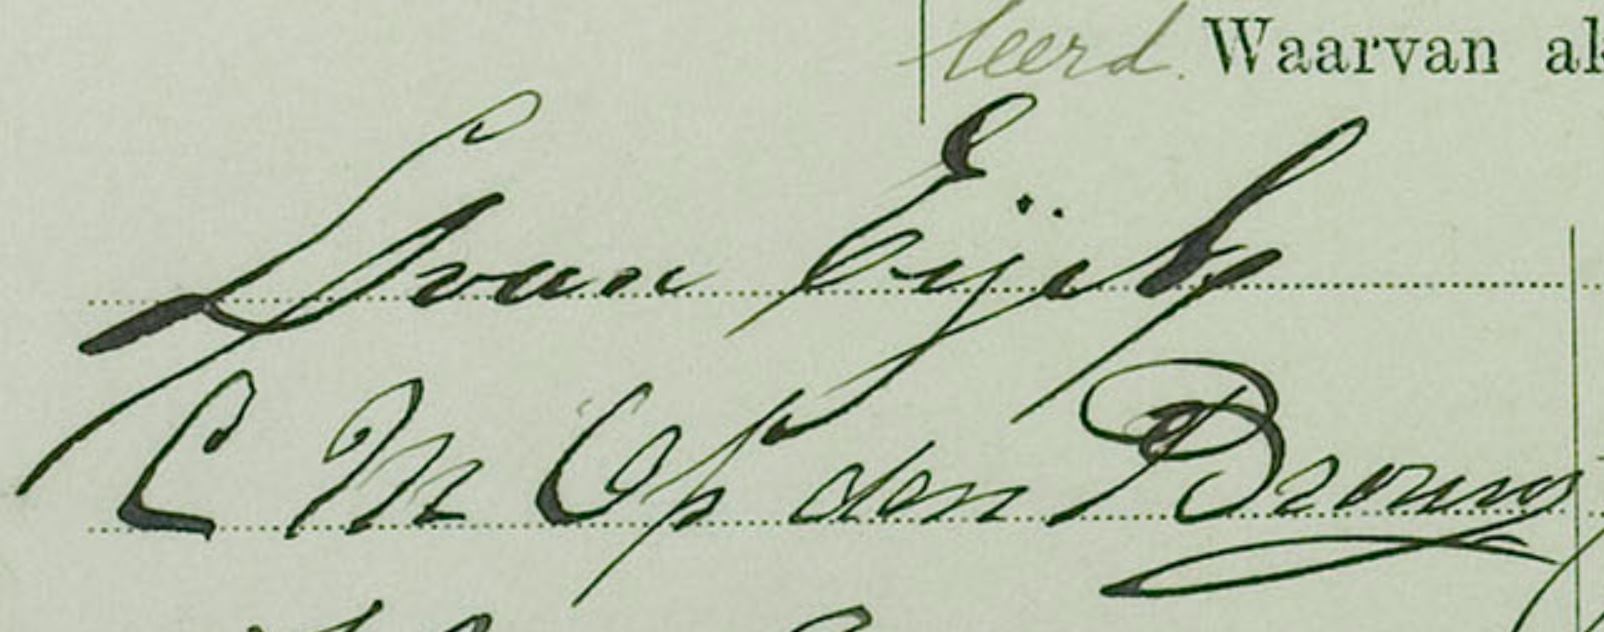 leerd. Waarvan ak
van Eijck
C M Op den Brouw